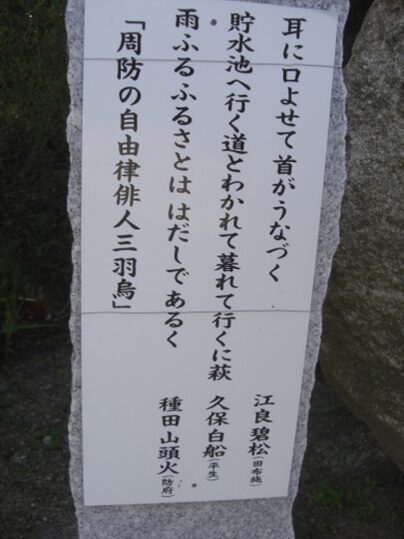 耳に口よせて首がうなづく
江良碧松(田布施)
貯水池へ行く道とわかれて暮れて行くに萩
久保白船(平生)
雨ふるふるさとは はだしであるく
種田山頭火(防府)
「周防の自由律俳人三羽烏」